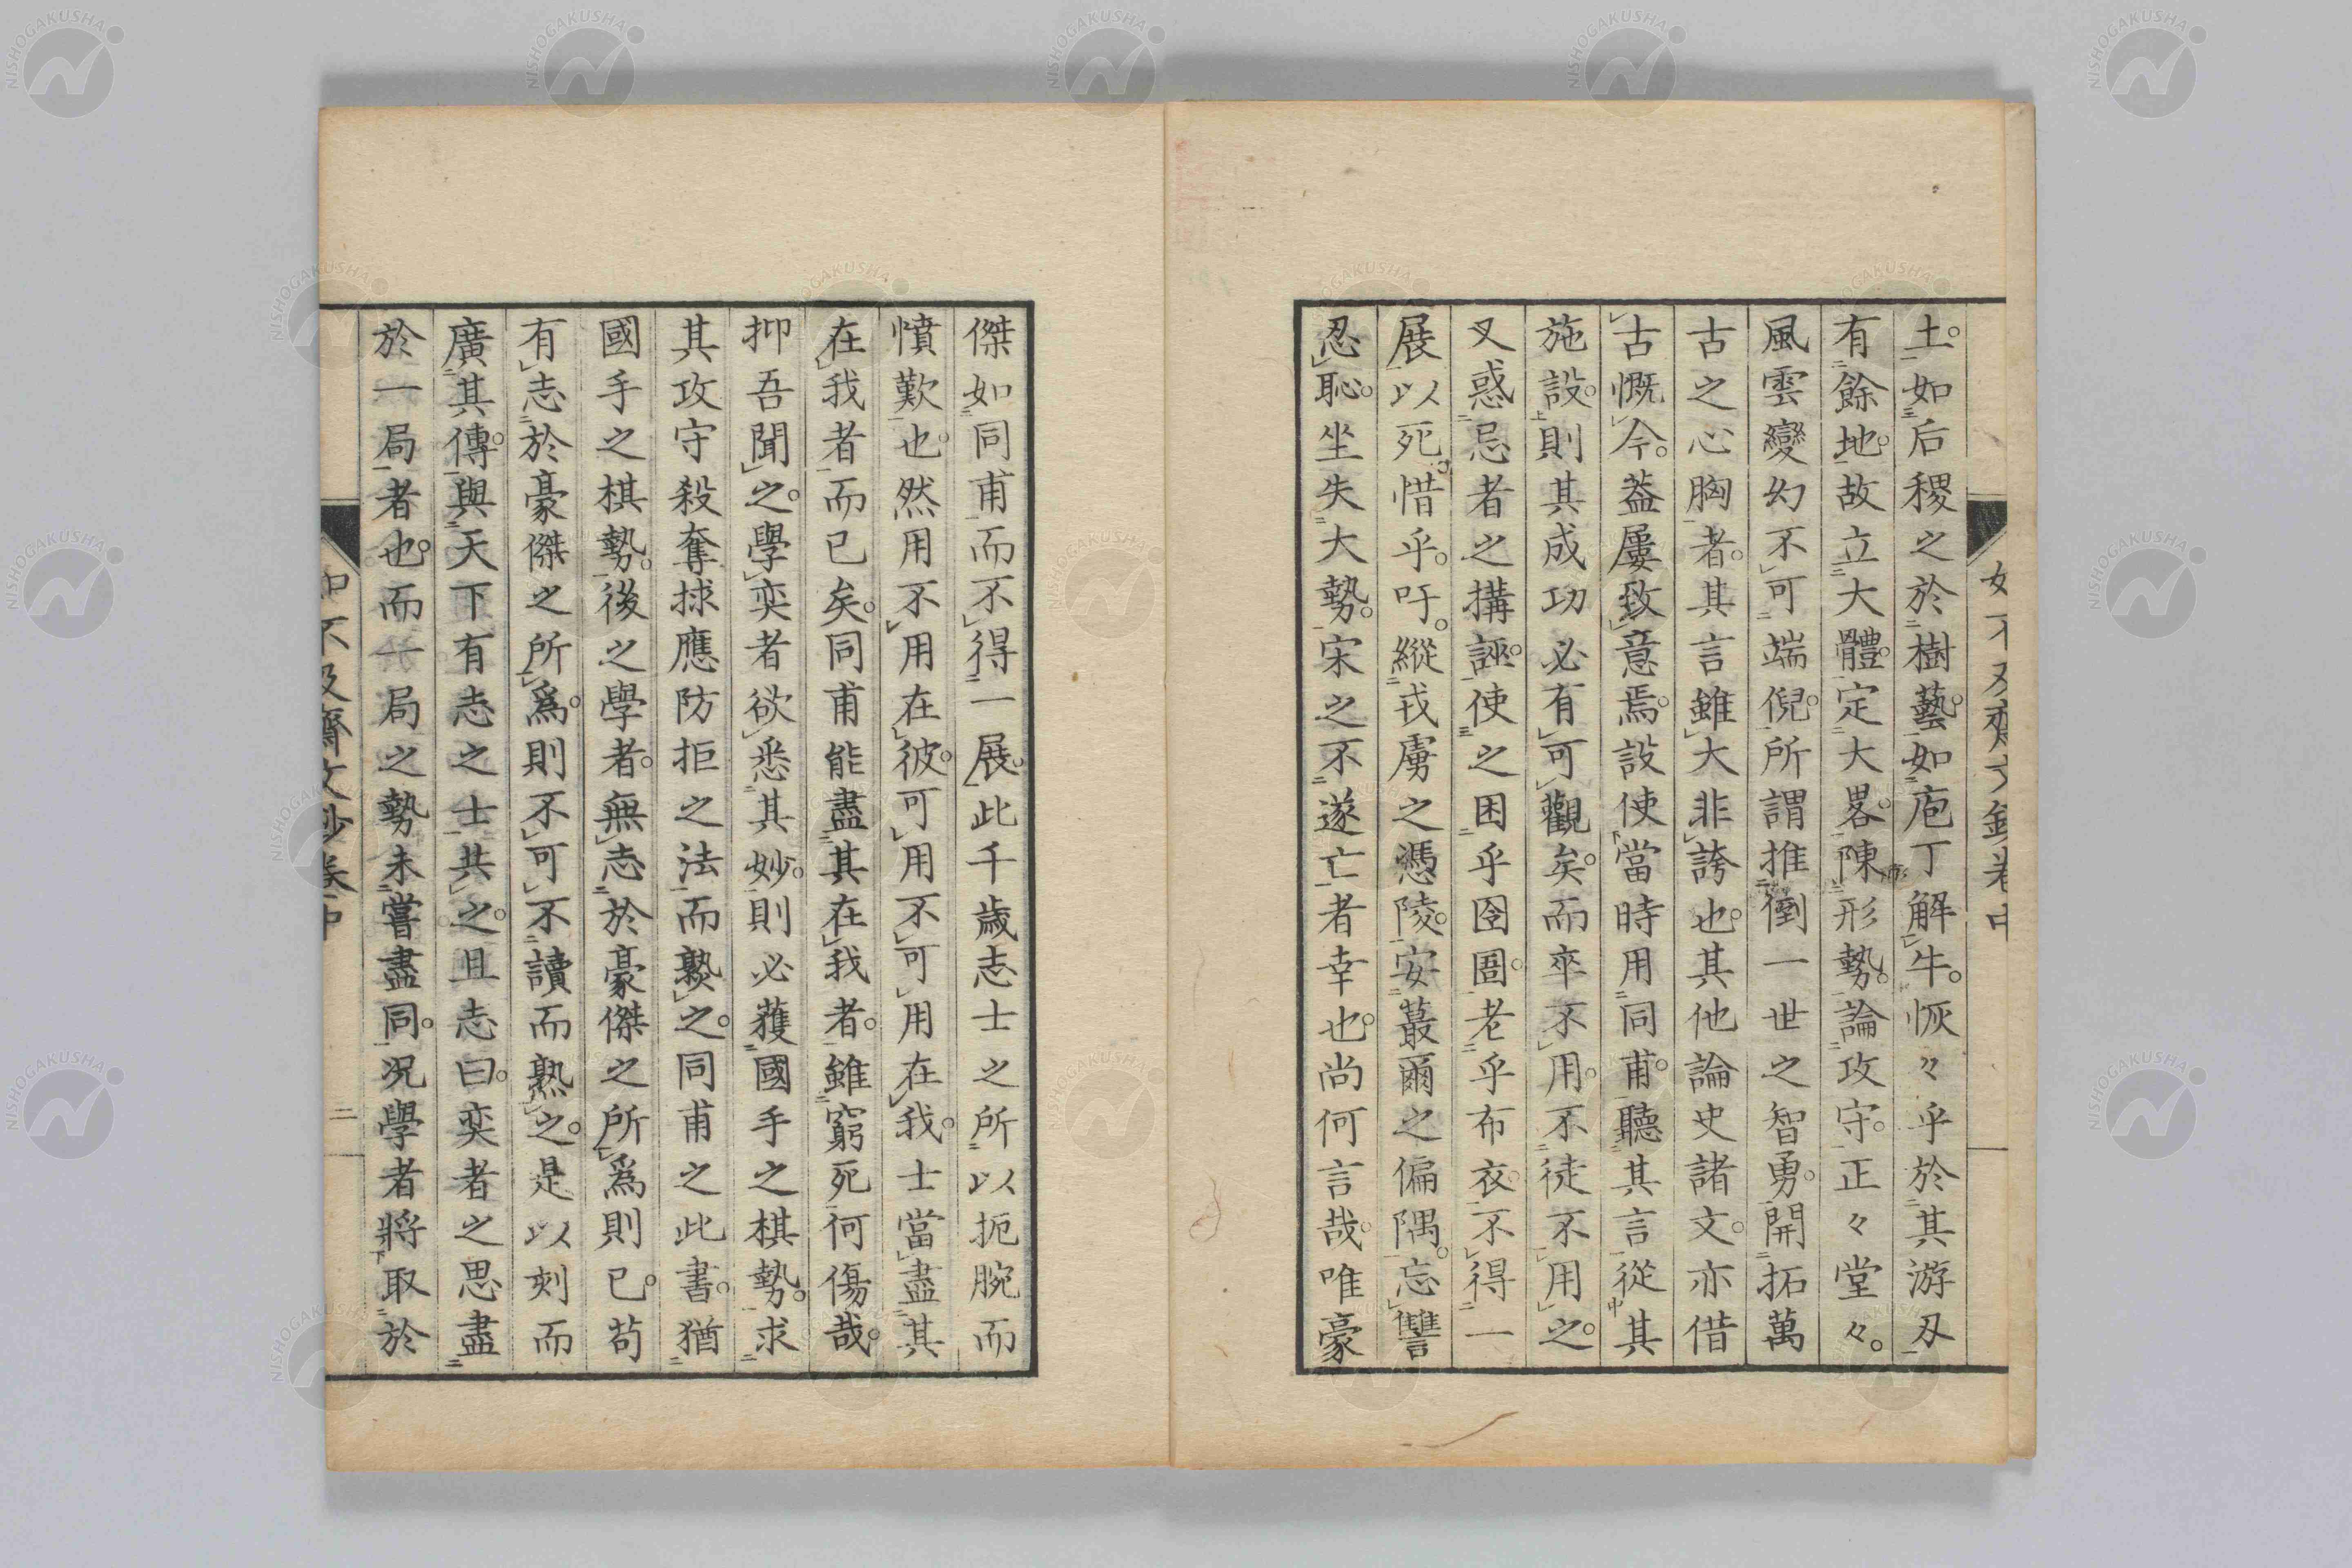 土。如后稷之於樹藝。如庖丁解牛。恢々乎於其游刃
有餘地。故立大體。定大畧。陳形勢。論攻守。正々堂々。
風雲變幻不可端倪。所謂推倒一世之智勇。開拓萬
古之心胸者。其言雖大非誇也。其他論史諸文。亦借
古慨今。葢屢致意焉。設使當時用同甫。聽其言從其
施設。則其成功必有可觀矣。而卒不用。不徒不用之。
又惑忌者之搆誣。使之困乎囹圄。老乎布衣。不得一
展以死。惜乎。吁。縱戎虜之憑陵。安蕞爾之偏隅。忘讐
忍恥。坐失大勢。宋之不遂亡者幸也。尚何言哉。唯豪
傑如同甫而不得一展。此千歲志士之所以扼腕而
憤歎也。然用不用在彼。可用不可用在我。士當盡其
在我者而已矣。同甫能盡其在我者。雖窮死何傷哉。
抑吾聞之。學奕者欲悉其妙。則必蒦國手之棋勢。求
其攻守殺奪捄應防拒之法而熟之。同甫之此書。猶
國手之棋勢。後之學者。無志於豪傑之所爲則已。苟
有志於豪傑之所爲。則不可不讀而熟之。是以刻而
廣其傳。與天下有志之士共之。且志曰。奕者之思盡
於一局者也。而一局之勢未嘗盡同。況學者將取於
如不及齋文鈔卷中
二
如不及齋文鈔卷中
NISHOGAKUSHA